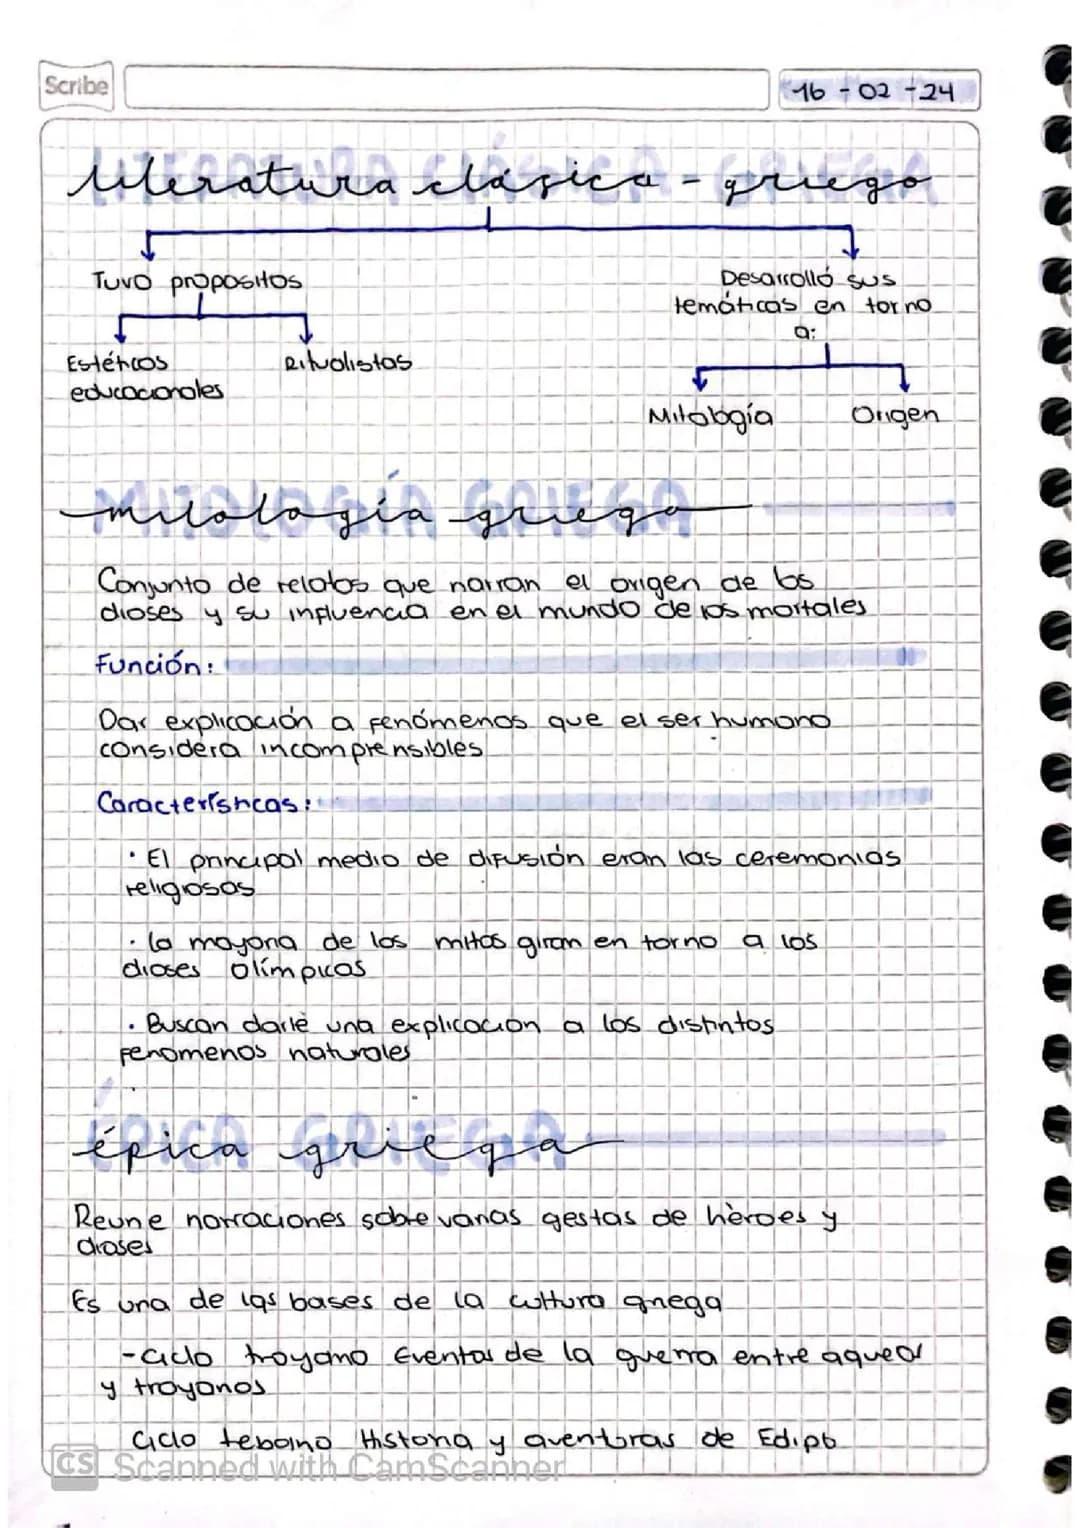 Scribe
16-02-24
literatura clásica - griega
Tuvo propositos
Desarrolló sus
temáticas en torno
a:
Estéticos
educacionales
Ritualistas
Mitología
Origen
mitología griega
Conjunto de relatos que narran el origen de los
dioses y su influencia en el mundo de los mortales
Función:
Dar explicación a fenómenos que el ser humano
considera incomprensibles
Características:
· El principal medio de difusión eran las ceremonias
religiosas
· la mayoria de los mitos giran en torno a los
dioses olímpicos
· Buscan darle una explicacion a los distintos
fenomenos naturales
épica griega
Reune narraciones sobre varias gestas de hèroes y
dioses
Es una de las bases de la cultura griega
-Ciclo troyano Eventos de la guerra entre aqueos
y troyanos
Ciclo tebaino Historia y aventuras de Edipo
CS Scanned with CamScanner